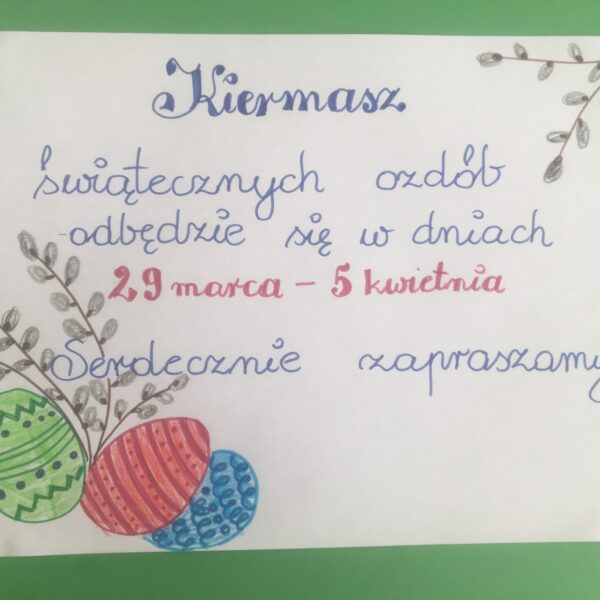 Kiermasz
świątecznych ozdób
-odbędzie się w dniach
29 marca - 5 kwietnia
Serdecznie zapraszamy